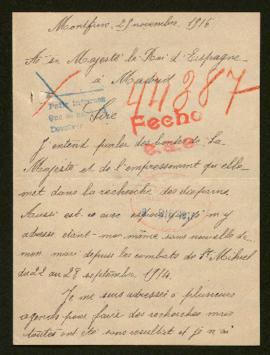 Montfrin. 29 novembre. 1916
A Sa Majesté le Roi d'Espagne
à Madrid
44387
Sire
Fecho
J'entend parler des bontés de La
Majesté et de l'empressement qu'elle
met dans la recherche des disparus.
Aussi est-ce avec espoir que je m'y
adresse étant moi même sans nouvelle de
mon mari depuis les combats de St Mihiel
du 22 au 29 septembre 1914.
Je me suis adressée à plusieurs
agences pour faire des recherches mais
toutes ont été sans resultat et je n'ai